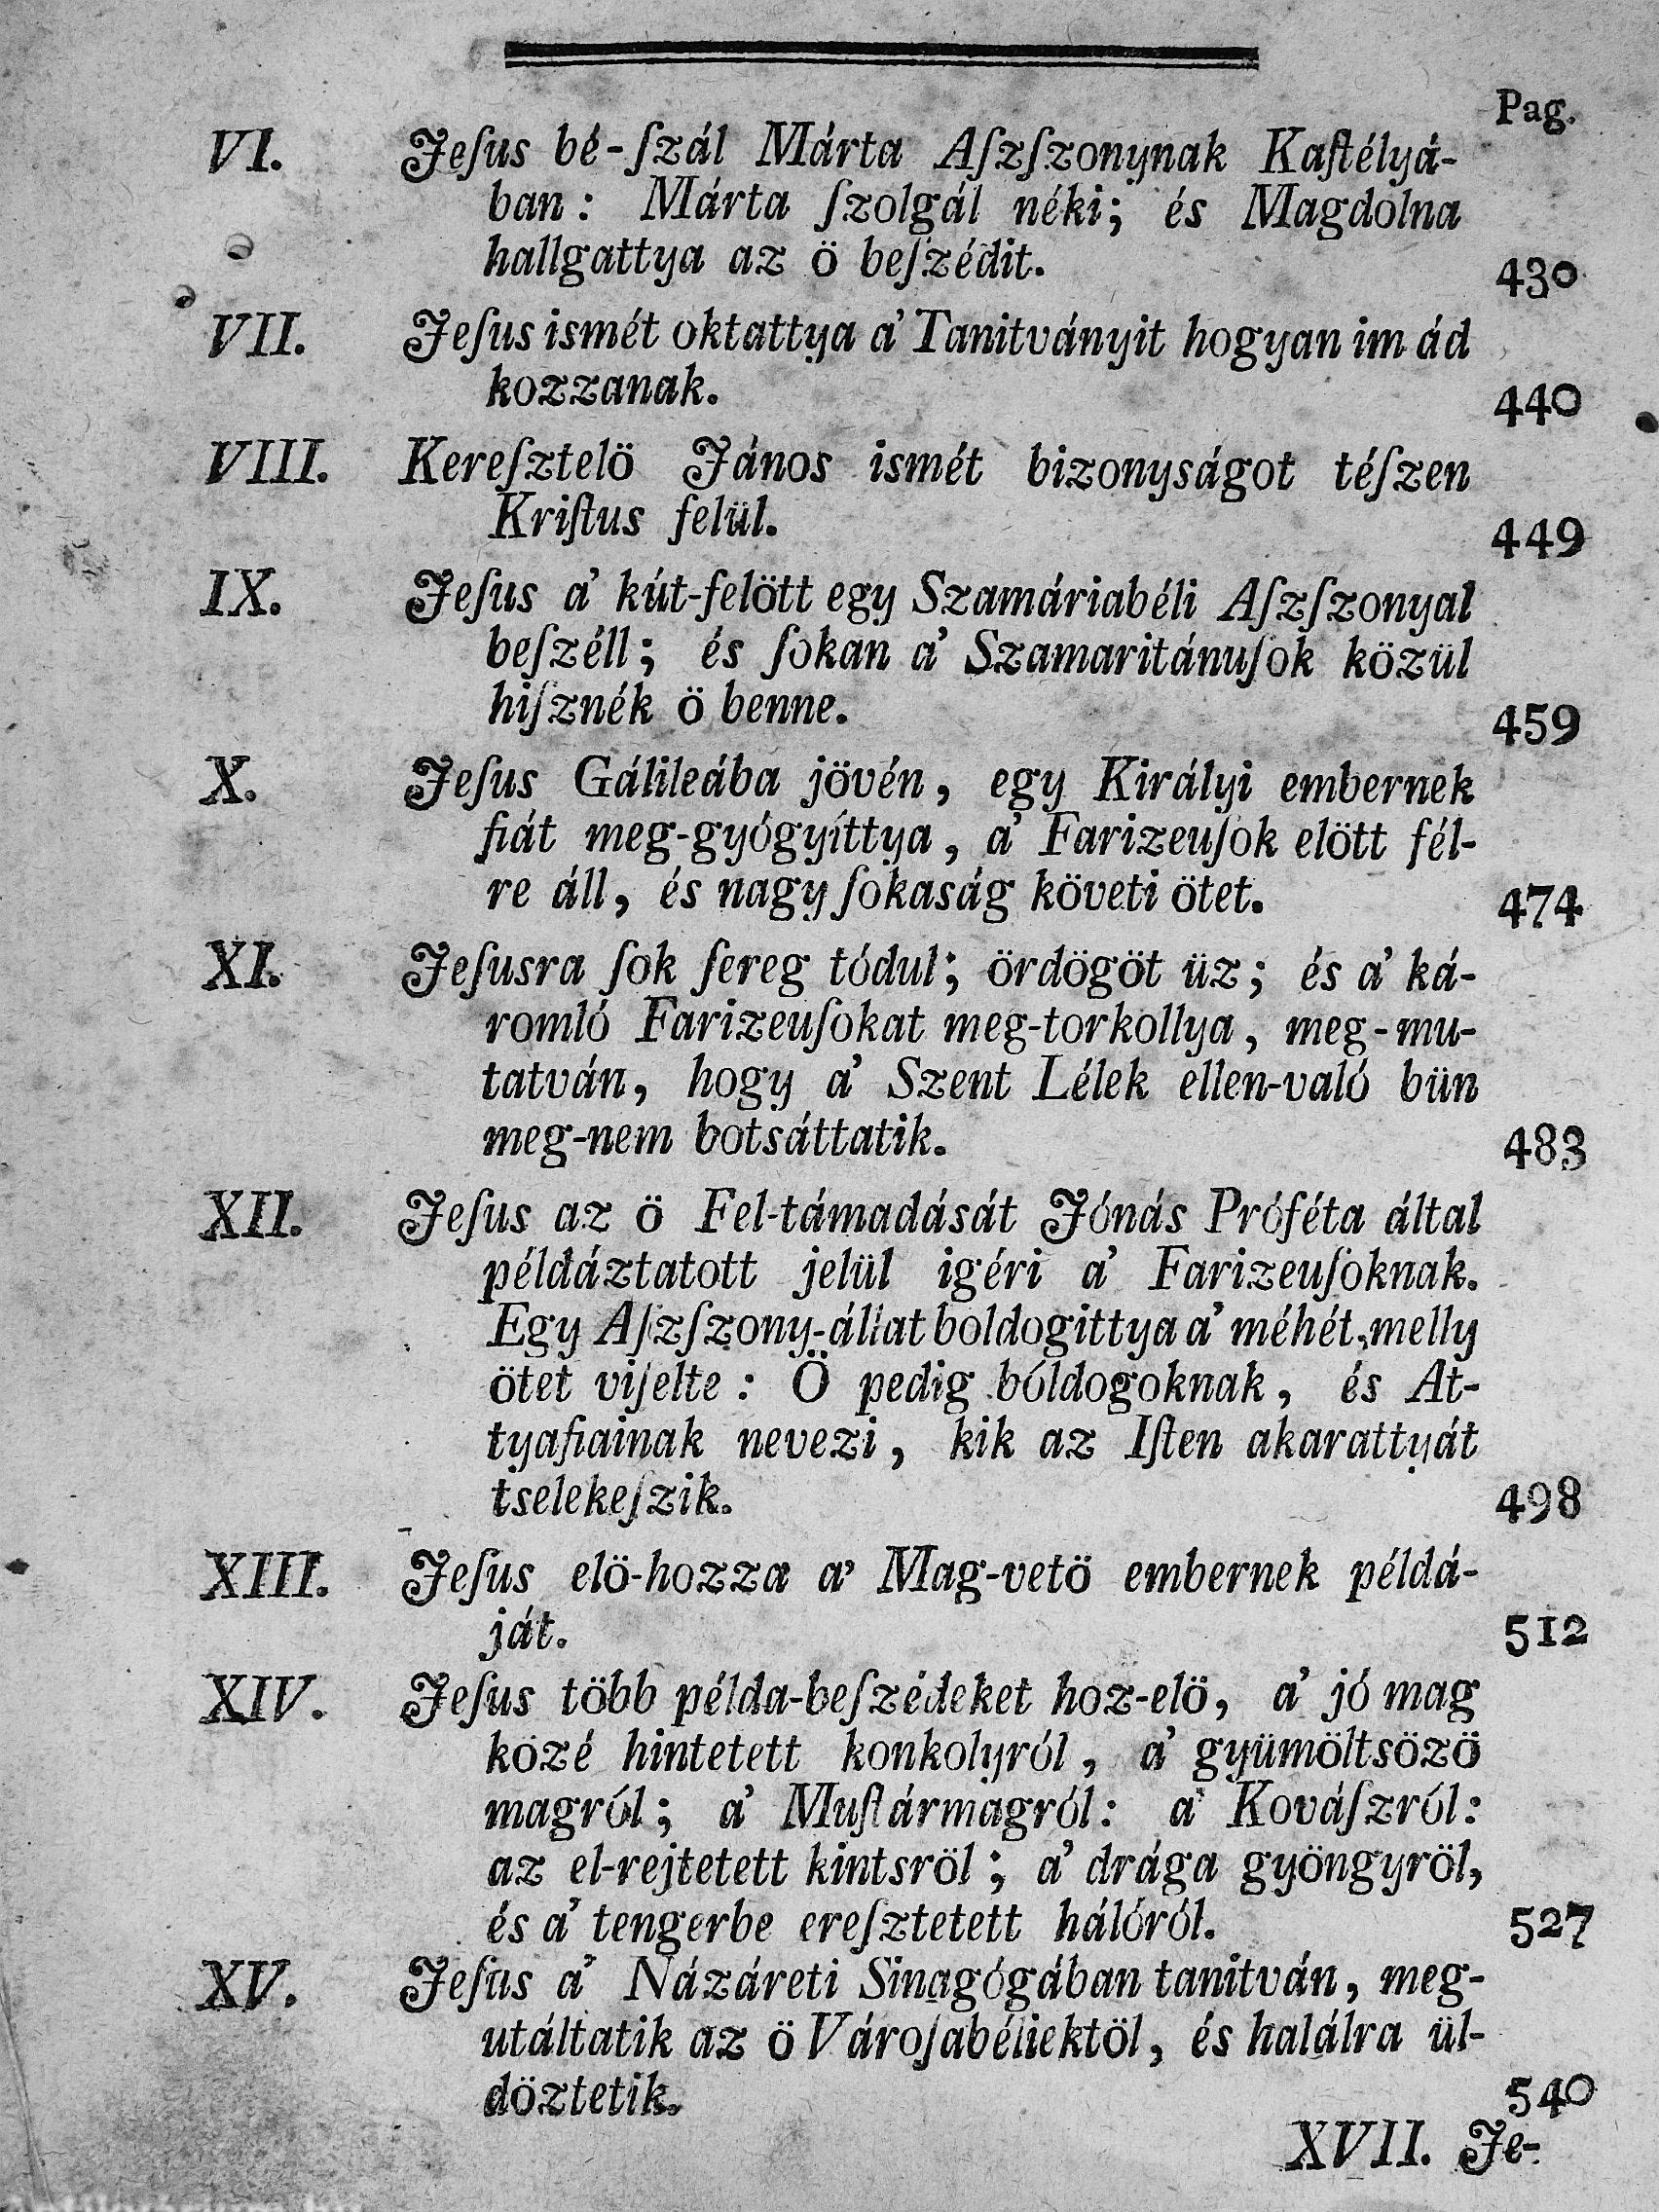 Pag.
VI. Jeſus bé-ſzál Márta Aſzſzonynak Kaſtélyá-
ban: Márta ſzolgál néki; és Magdolna
hallgattya az ö beſzédit. 430
VII. Jeſus ismét oktattya a' Tanitványit hogyan imád
kozzanak. 440
VIII. Kereſztelö János ismét bizonyságot téſzen
Kriſtus felül. 449
IX. Jeſus a' kút-felött egy Szamáriabéli Aſzſzonyal
beſzéll; és ſokan a' Szamaritánuſok közül
hiſznék ö benne. 459
X. Jeſus Gálileába jövén, egy Királyi embernek
fiát meg-gyógyíttya, a' Farizeuſok elött fél-
re áll, és nagy ſokaság követi ötet. 474
XI. Jeſusra ſok ſereg tódul; ördögöt üz; és a' ká-
romló Farizeuſokat meg-torkollya, meg-mu-
tatván, hogy a' Szent Lélek ellen-való bün
meg-nem botsáttatik. 483
XII. Jeſus az ö Fel-támadását Jónás Próféta által
példáztatott jelül igéri a' Farizeuſoknak.
Egy Aſzſzony-állat boldogittya a' méhét, melly
ötet viſelte: Ö pedig bóldogoknak, és At-
tyafiainak nevezi, kik az Iſten akarattyát
tselekeſzik. 498
XIII. Jeſus elö-hozza a' Mag-vetö embernek példá-
ját. 512
XIV. Jeſus több példa-beſzédeket hoz-elö, a' jó mag
közé hintetett konkolyról, a' gyümöltsözö
magról; a' Muſtármagról: a' Kováſzról:
az el-rejtetett kintsröl; a' drága gyöngyröl,
és a' tengerbe ereſztetett hálóról. 527
XV. Jeſus a' Názáreti Sinagógában tanitván, meg-
utáltatik az ö Városabéliektöl, és halálra ül-
döztetik. 540
XVII. Je-